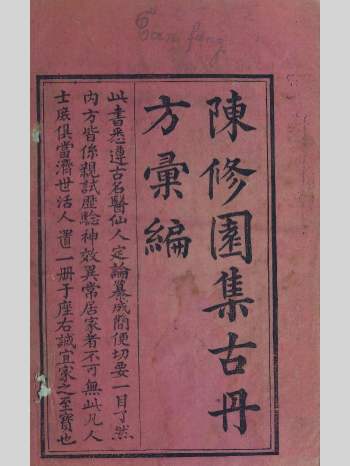 陳修園集古丹
方彙編
此書悉遵古名醫仙人定論纂成簡便切要一目了然
内方皆係親試歷驗神效異常居家者不可無此凡人
士庶俱當濟世活人置一册于座右誠宜家之至寶也